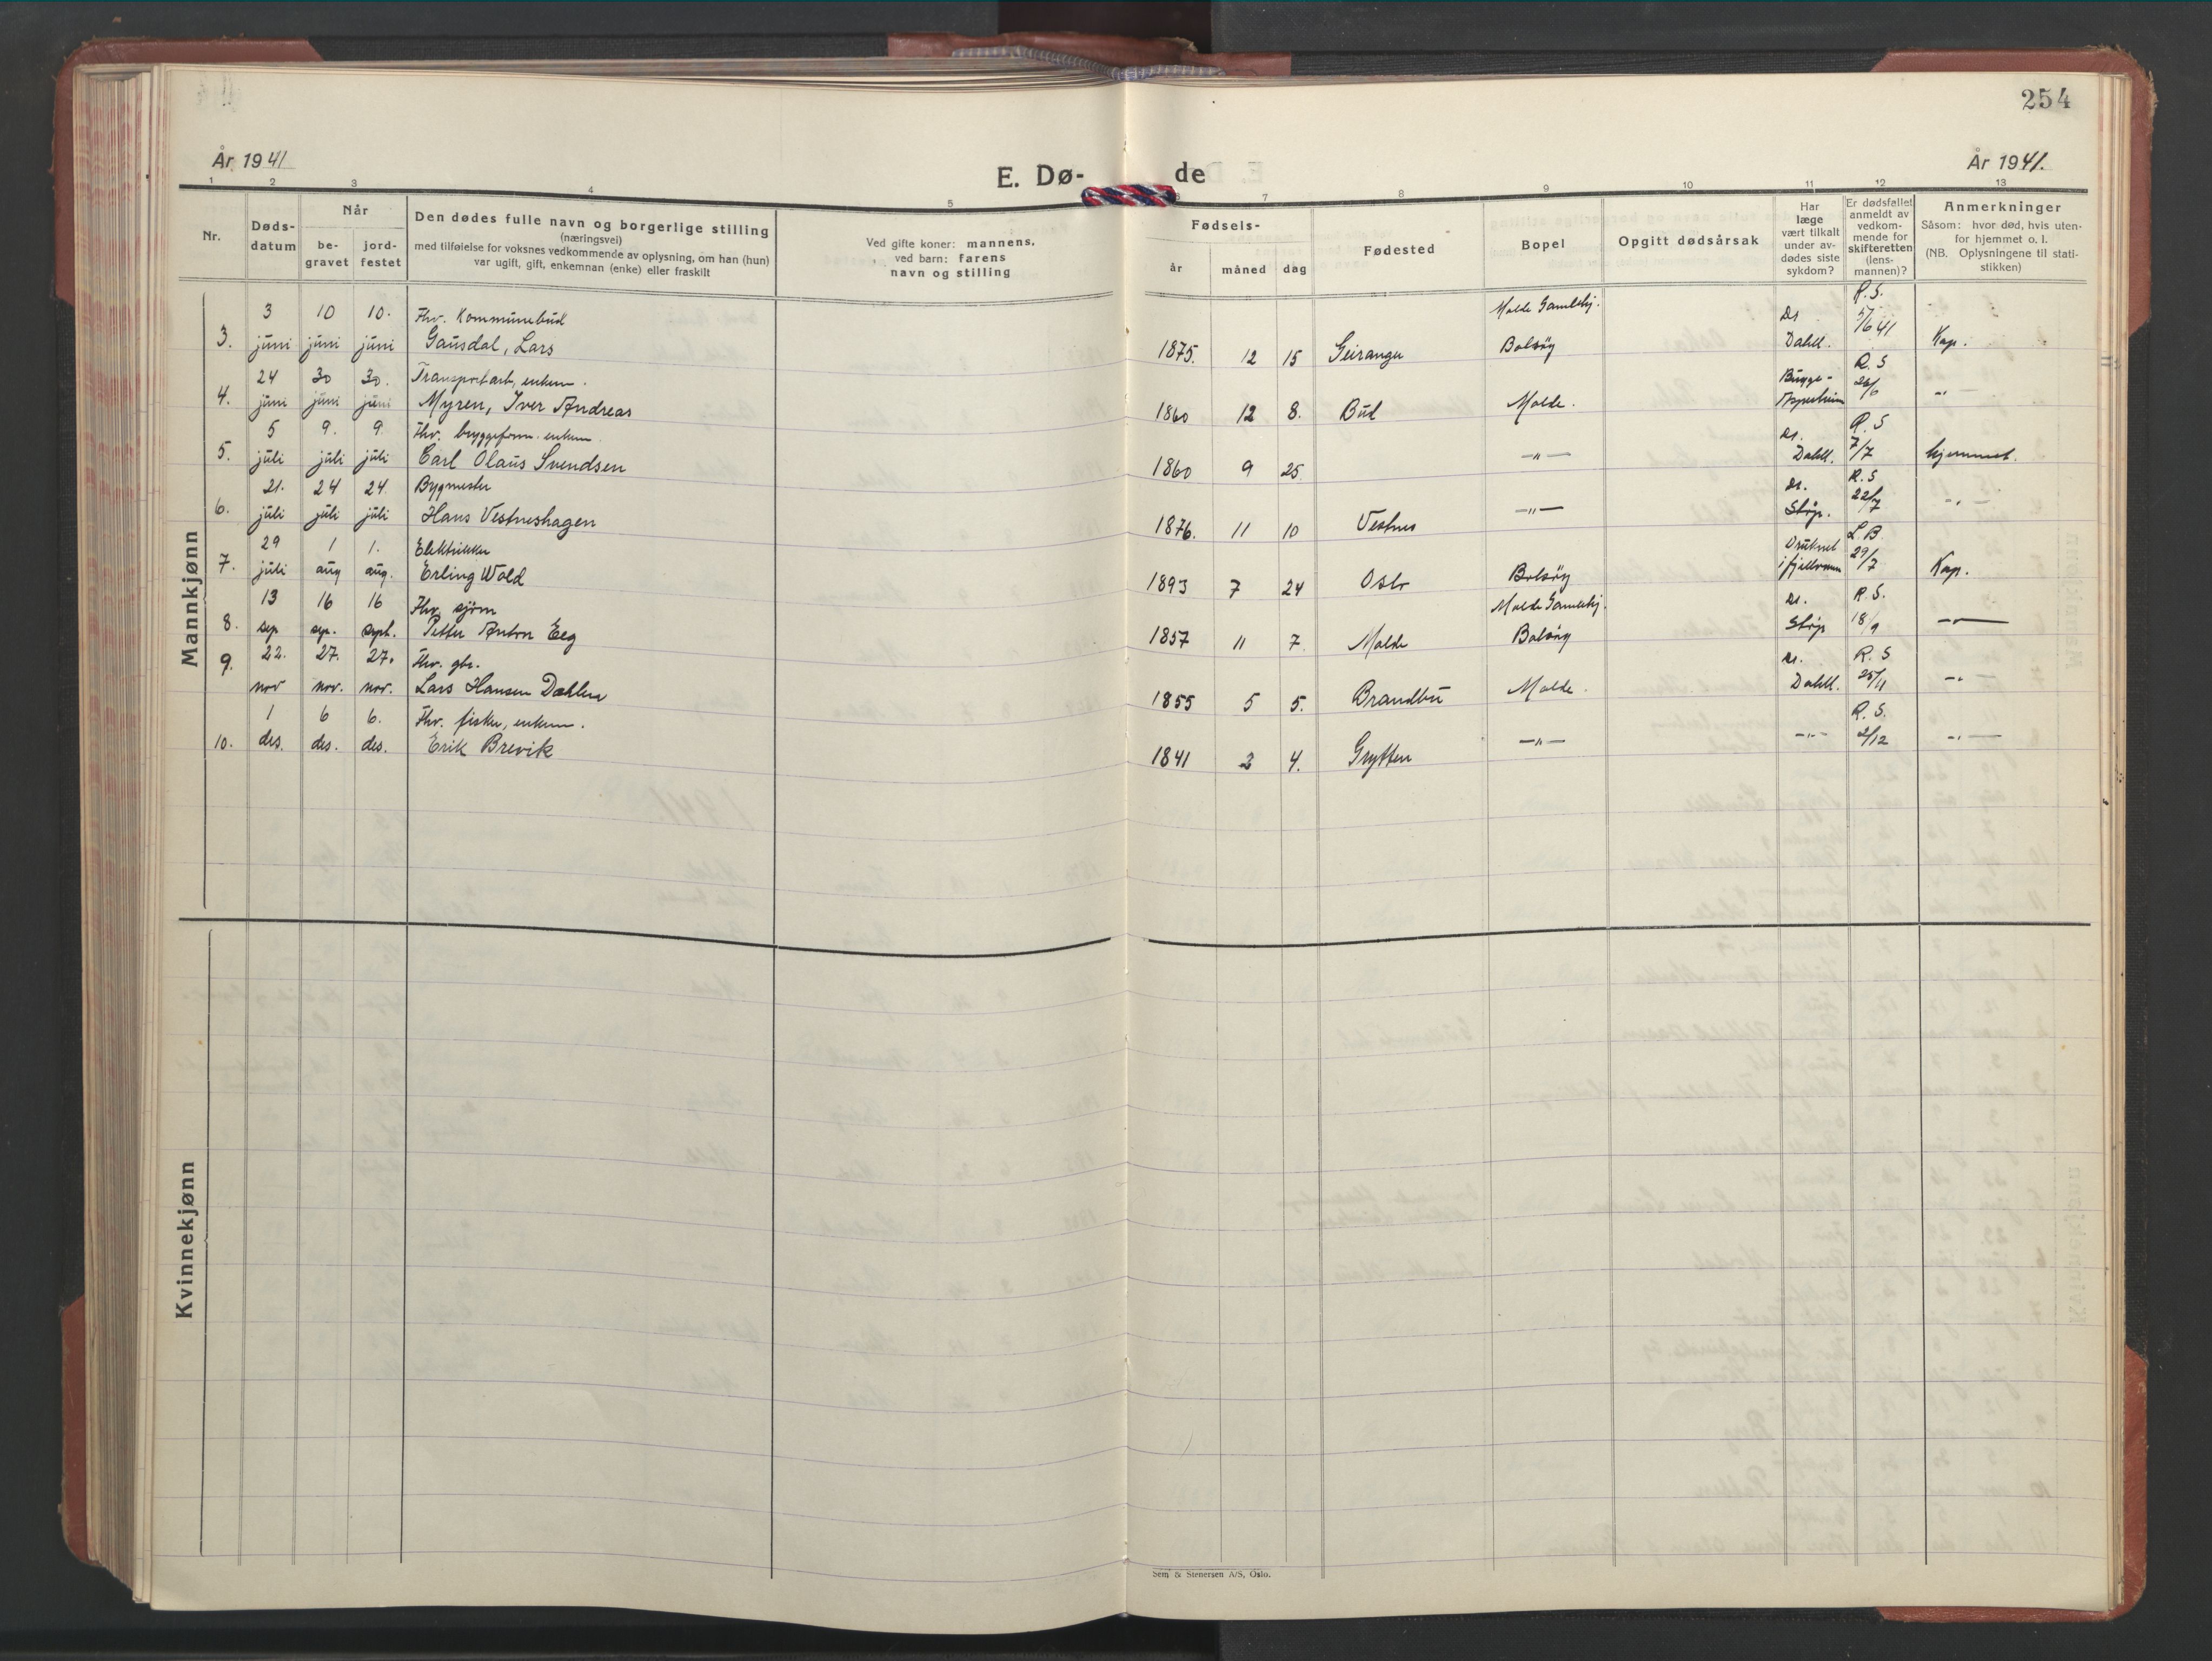 254
År 1941
E. Dø-
de
År 1941.
1 2 3 4 5 6 7 8 9 10 11 12 13
Nr.
Døds-
datum
Når
be-
gravet
jord-
festet
Den dødes fulle navn og borgerlige stilling
(næringsvei)
med tilføielse for voksnes vedkommende av oplysning, om han (hun)
var ugift, gift, enkemnan (enke) eller fraskilt
Ved gifte koner: mannens,
ved barn: farens
navn og stilling
Fødsels-
år måned dag
Fødested
Bopel
Opgitt dødsårsak
Har
læge
vært tilkalt
under av-
dødes siste
sykdom?
Er dødsfallet
anmeldt av
vedkom-
mende for
skifteretten
(lens-
mannen)?
Anmerkninger
Såsom: hvor død, hvis uten-
for hjemmet o. l.
(NB. Oplysningene til stati-
stikken)
Mannkjønn
3 10 10. Fhv. Kommunebud Molde Gamlehj. Dr. R. S.
3. juni juni juni Gausdal, Lars 1875. 12 15 Geiranger Bolsøy Dahll. 5/6 41 Kap.
24 30 30. Transportarb, enkem. Bugge- R. S
4. juni juni juni Myren, Iver Andreas 1860 12 8. Bud Molde. Asperheim 26/6 -"-
5 9. 9. Fhv. bryggeform. enkem. Dr. R. S
5. juli juli juli Carl Olaus Svendsen 1860 9 25. -"- Dahll. 7/7 hjemmet.
21. 24 24. Bygmester Dr. R. S
6. juli juli juli Hans Vestneshagen 1876. 11 10 Vestnes -"- Strøp. 22/7 -"-
29 1 1. Elektriker Druknet L. B
7. juli aug aug. Erling Wold 1893 7 24 Oslo Bolsøy i fjellvann 29/7 Kap.
13 16 16 Fhv. sjøm Molde Gamlehj. Dr. R. S.
8. sep sep. sept. Petter Anton Eeg 1857 11 7. Molde Bolsøy Strøp 18/9 -"-
9. 22. 27. 27. Fhv. gbr. Dr. R. S
nov nov. nov. Lars Hansen Dæhlen 1855 5 5. Brandbu Molde. Dahll. 25/11 -"-
1 6 6. Fhv. fisker, enkem. R. S.
10. des. des. des. Erik Brevik 1841 2 4. Grytten -"- -"- 2/12 -"-
Kvinnekjønn
Sem & Stenersen A/S, Oslo.